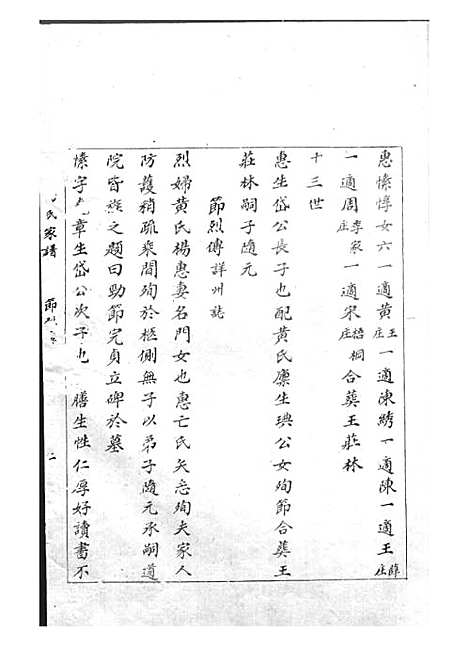 惠愫惇女六一適黃王庄一適陳綉一適陳一適王薛庄
一適周李家庄一適宋梧桐庄合葬王莊林
十三世
惠生岱公長子也配黃氏廩生琠公女殉節合葬王
莊林嗣子隨元
節烈傳詳州誌
烈婦黃氏楊惠妻名門女也惠亡氏矢志殉夫家人
防護稍疏乘間殉於柩側無子以弟子隨元承嗣道
院旨旌之題曰勁節完貞立碑於墓
愫字 章生岱公次子也 膳生性仁厚好讀書不
氏家譜
二